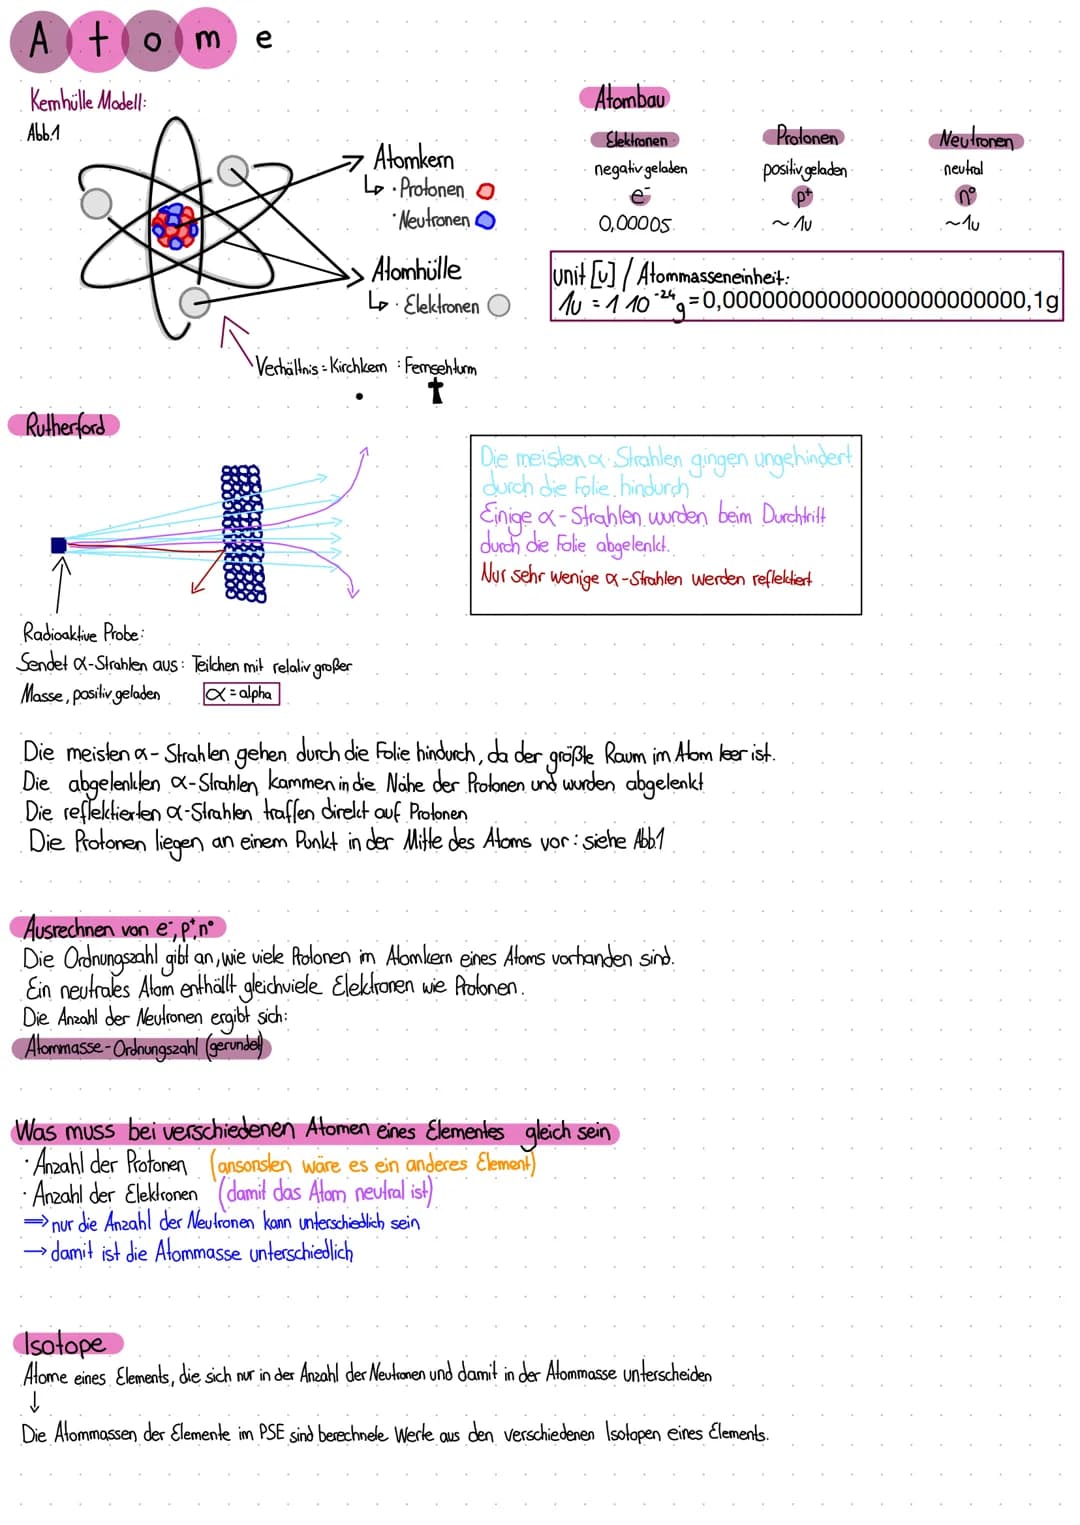 Atome
Kernhülle Modell:
Abb.1
Atomkern
↳ · Protonen
· Neutronen
Atomhülle
↳ · Elektronen
Verhältnis = Kirchkern : Fernsehturm
Atombau
Elektronen
negativ geladen
e⁻
0,00005
Protonen
positiv geladen
p⁺
~1u
Neutronen
neutral
n°
~1u
unit [u] / Atommasseneinheit:
1u = 1 10⁻²⁴g = 0,00000000000000000000000,1g
Rutherford
Die meisten α-Strahlen gingen ungehindert
durch die Folie hindurch
Einige α-Strahlen wurden beim Durchtritt
durch die Folie abgelenkt.
Nur sehr wenige α-Strahlen werden reflektiert
Radioaktive Probe:
Sendet α-Strahlen aus: Teilchen mit relativ großer
Masse, positiv geladen
α = alpha
Die meisten α-Strahlen gehen durch die Folie hindurch, da der größte Raum im Atom leer ist.
Die abgelenkten α-Strahlen kammen in die Nähe der Protonen und wurden abgelenkt
Die reflektierten α-Strahlen traffen direkt auf Protonen
Die Protonen liegen an einem Punkt in der Mitte des Atoms vor: siehe Abb.1
Ausrechnen von e⁻, p⁺, n°
Die Ordnungszahl gibt an, wie viele Protonen im Atomkern eines Atoms vorhanden sind.
Ein neutrales Atom enthällt gleichviele Elektronen wie Protonen.
Die Anzahl der Neutronen ergibt sich:
Atommasse-Ordnungszahl (gerundet)
Was muss bei verschiedenen Atomen eines Elementes gleich sein
· Anzahl der Protonen (ansonsten wäre es ein anderes Element)
· Anzahl der Elektronen (damit das Atom neutral ist)
⇒ nur die Anzahl der Neutronen kann unterschiedlich sein
→ damit ist die Atommasse unterschiedlich
Isotope
Atome eines Elements, die sich nur in der Anzahl der Neutronen und damit in der Atommasse unterscheiden
↓
Die Atommassen der Elemente im PSE sind berechnete Werte aus den verschiedenen Isotopen eines Elements.